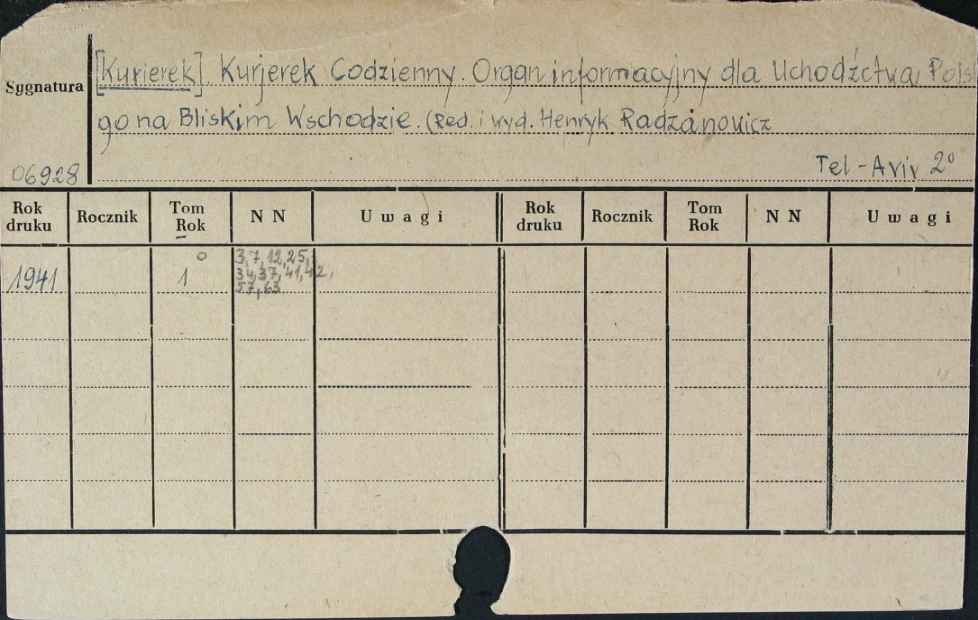 Sygnatura
[Kurierek]. Kurjerek Codzienny. Organ informacyjny dla Uchodźctwa Pols
go na Bliskim Wschodzie. (Red. i wyd. Henryk Radzanowicz
06928
Tel-Aviv 2°
Rok druku Rocznik Tom Rok N N Uwagi Rok druku Rocznik Tom Rok N N Uwagi
1941 1 3,7,12,25,
34,37,41,42,
57,63